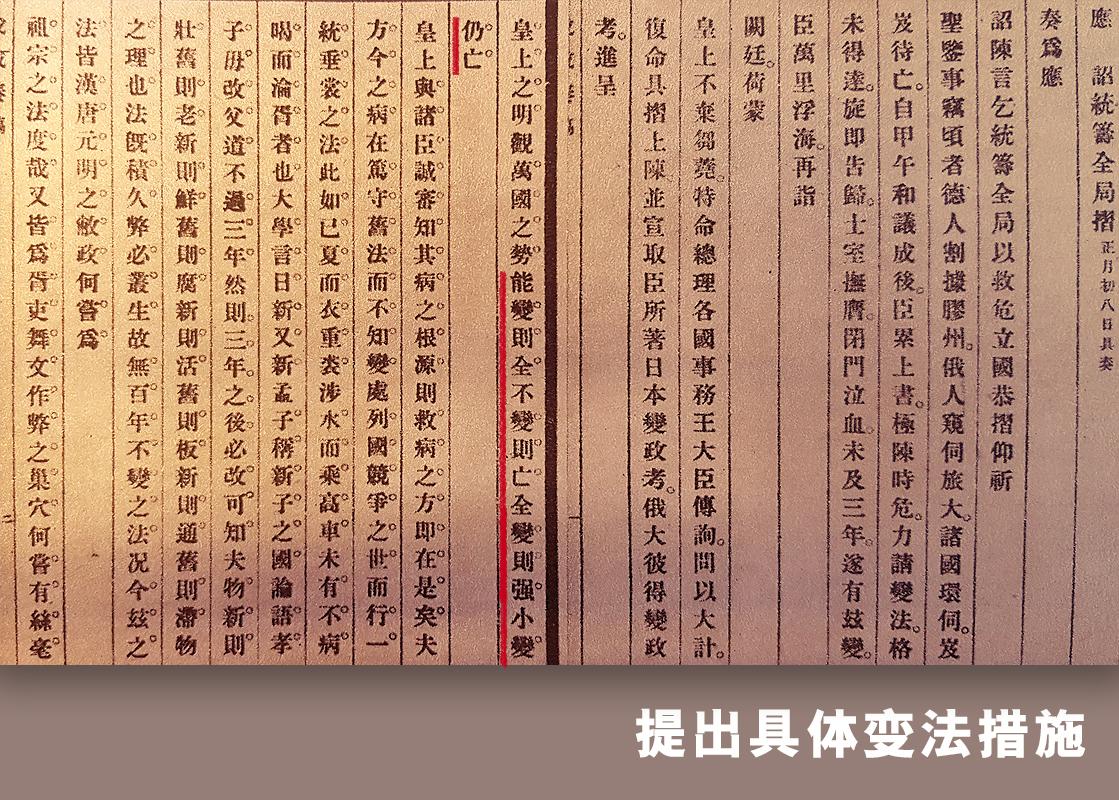 應　詔統籌全局摺正月初八日具奏
奏爲應
詔陳言乞統籌全局以救危立國恭摺仰祈
聖鑒事竊頃者德人割據膠州。俄人窺伺旅大。諸國環伺。岌
岌待亡。自甲午和議成後。臣累上書。極陳時危。力請變法。格
未得達。旋即告歸。土室撫膺。閉門泣血。未及三年。遂有茲變。
臣萬里浮海。再詣
闕廷。荷蒙
皇上不棄芻蕘。特命總理各國事務王大臣傳詢。問以大計。
復命具摺上陳並宣取臣所著日本變政考。俄大彼得變政
考。進呈
皇上之明觀萬國之勢能變則全不變則亡全變則强小變
仍亡
皇上與諸臣誠審知其病之根源則救病之方即在是矣夫
方今之病在篤守舊法而不知變處列國競爭之世而行一
統垂裳之法此如已夏而衣重裘涉水而乘高車未有不病
暍而淪胥者也大學言日新又新孟子稱新子之國論語孝
子毋改父道不過三年然則三年之後必改可知夫物新則
壯舊則老新則鮮舊則腐新則活舊則板新則通舊則滯物
之理也法既積久弊必叢生故無百年不變之法况今茲之
法皆漢唐元明之敝政何嘗爲
祖宗之法度哉又皆爲胥吏舞文作弊之巢穴何嘗有絲毫
提出具体变法措施